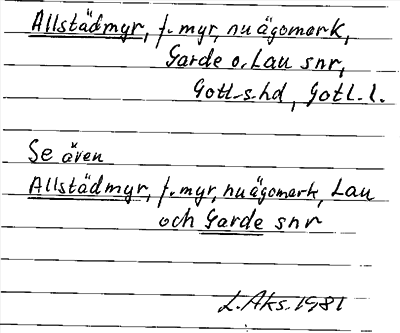 Allstädmyr, f. myr, nu ägomark,
Garde o. Lau snr,
Gotl. s. hd, Gotl. l.
Se även
Allstädmyr, f. myr, nu ägomark, Lau
och Garde snr
L. Aks. 1981